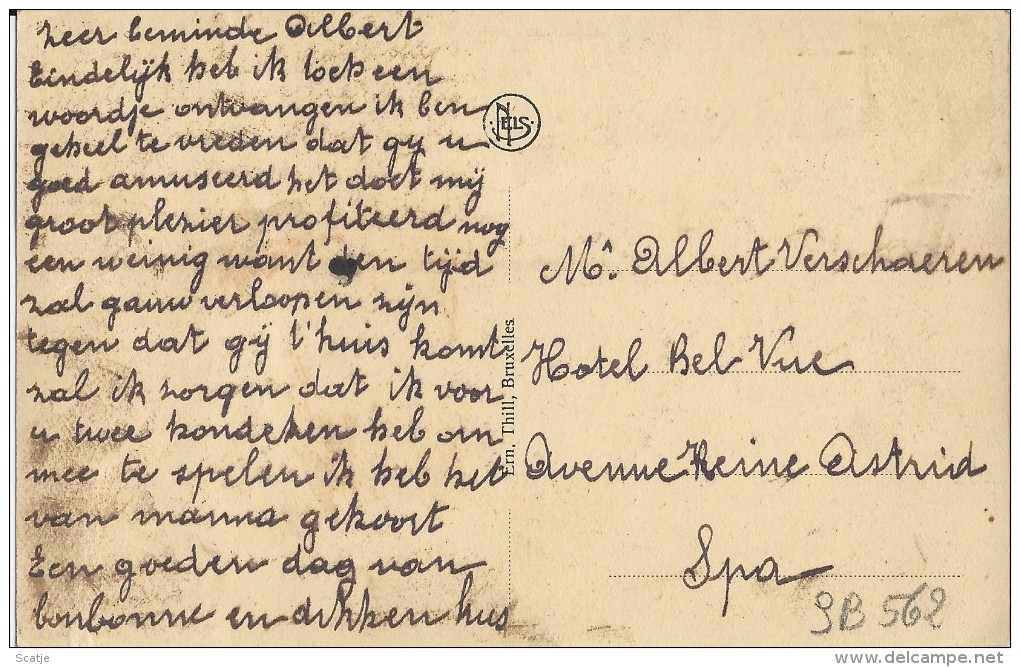 zeer beminde Albert
Eindelijk heb ik toch een
woordje ontvangen ik ben
geheel te vreden dat gij u
goed amuseerd het doet mij
groot plezier profiteerd nog
een weinig want den tijd
zal gauw verloopen zijn
tegen dat gij t'huis komt
zal ik zorgen dat ik voor
u twee hondeken heb om
mee te spelen ik heb het
van mama gekoort
Een goeden dag van
bonbonne en dikken kus
NELS
Ern. Thill, Bruxelles
Mr. Albert Verschaeren
Hotel Bel Vue
Avenue Reine Astrid
Spa
SB 562
Scatje
delcampe.net